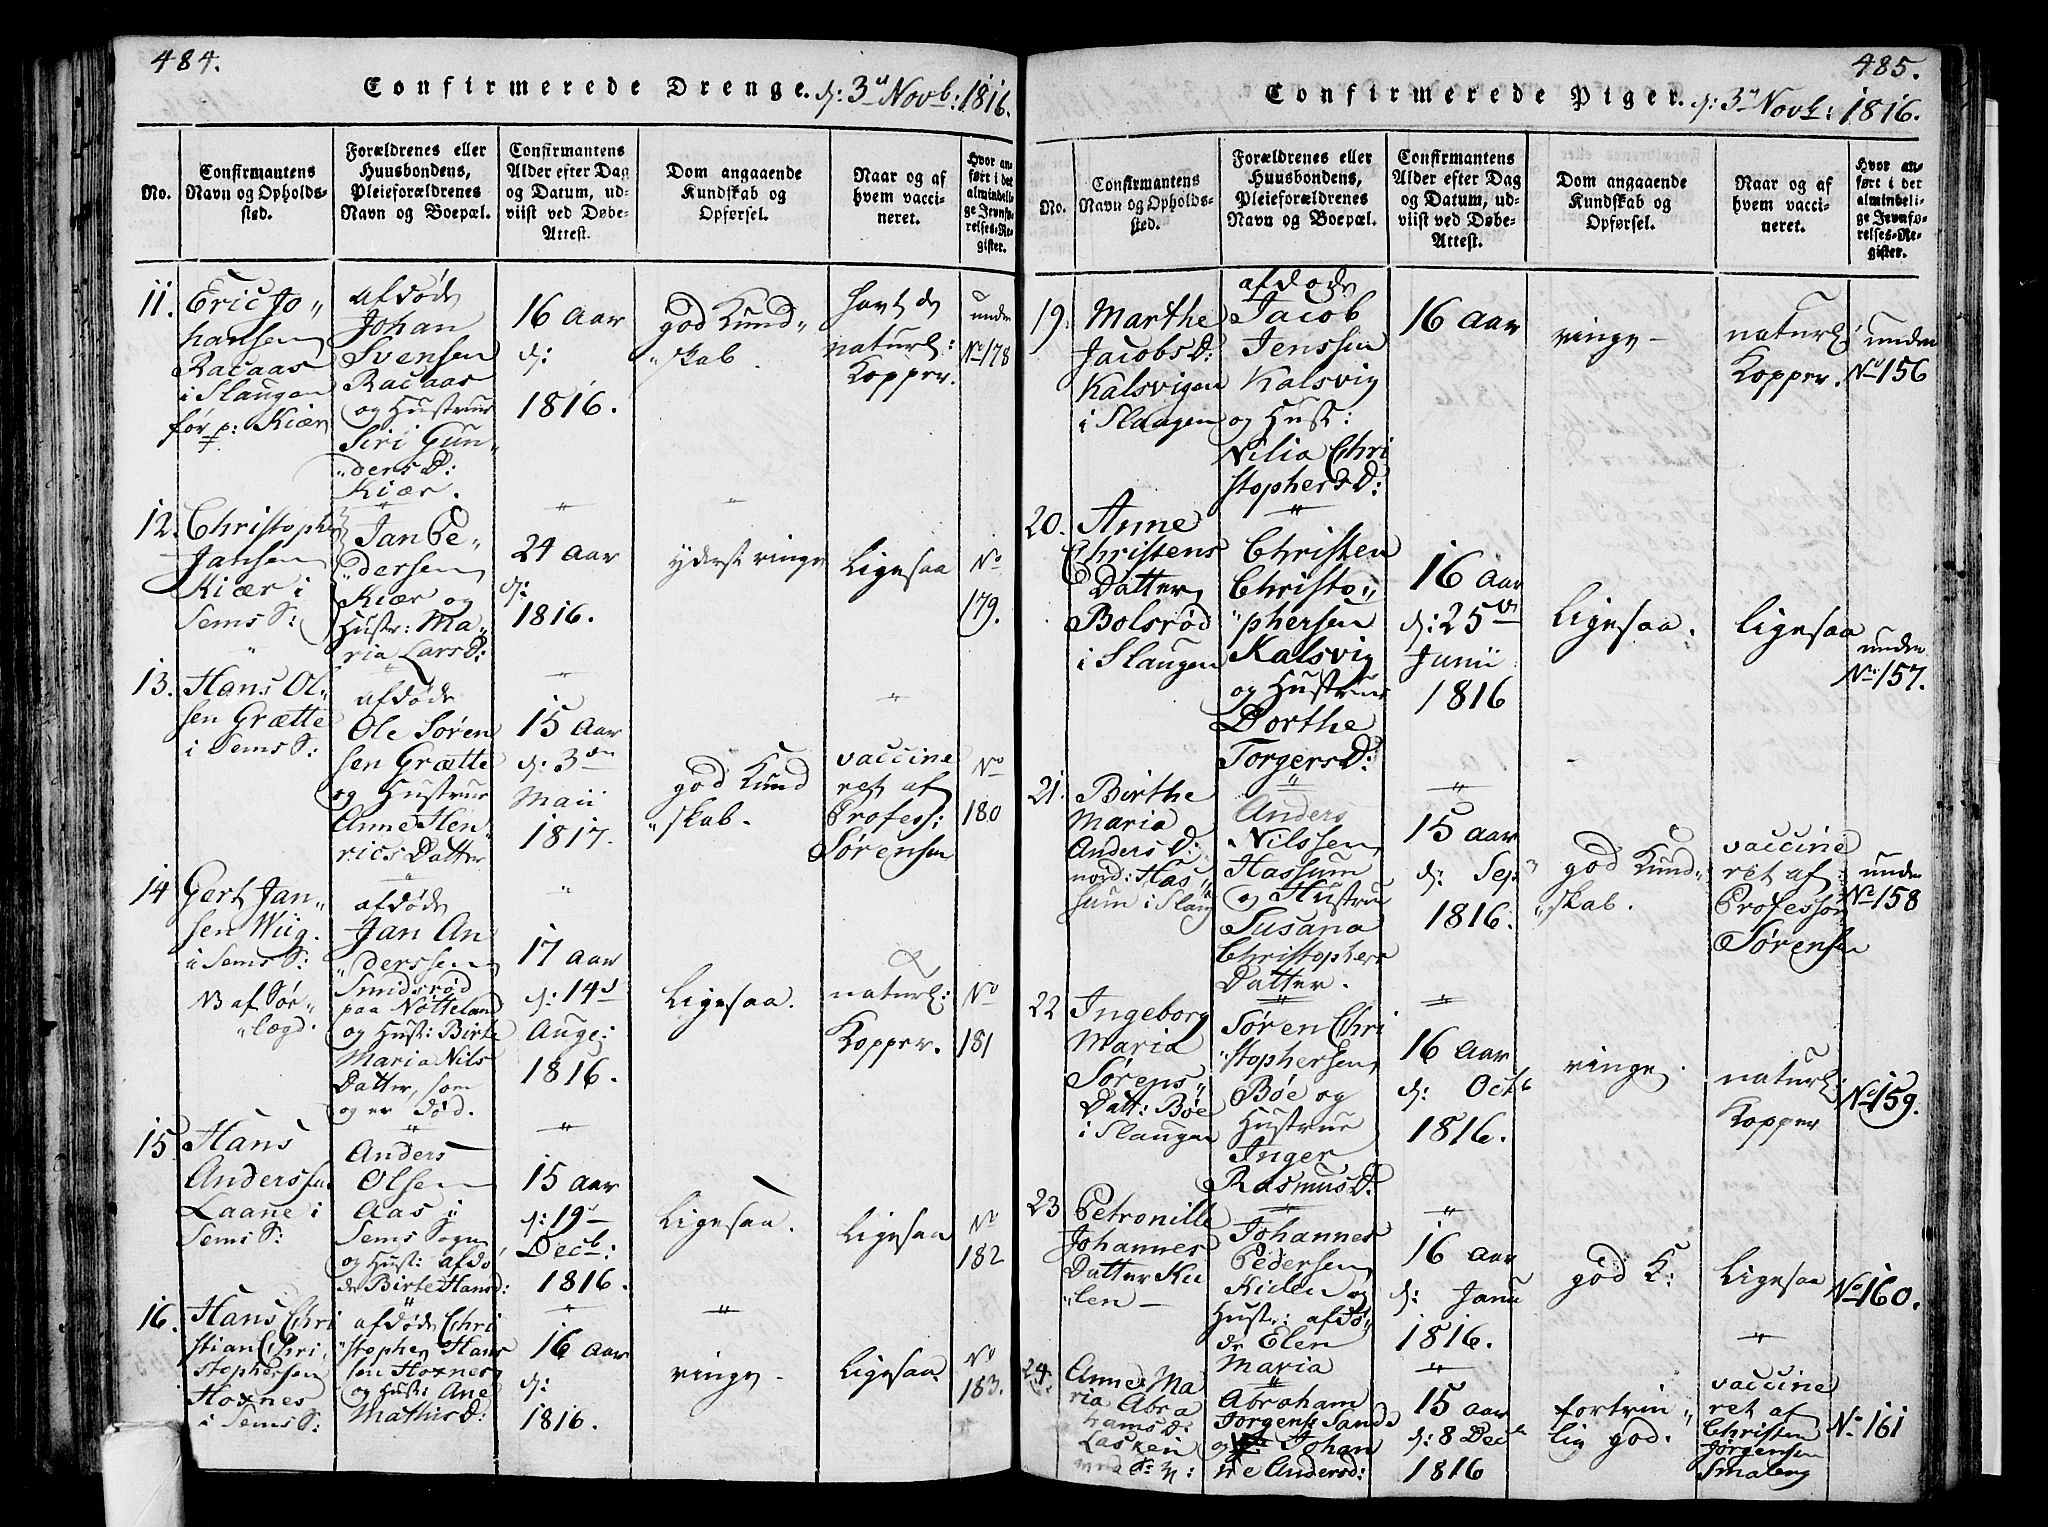 484.
Confirmerede Drenge. d: 3die Novb: 1816.
No.
Confirmantens
Navn og Opholds-
sted.
Forældrenes eller
Huusbondens,
Pleieforældrenes
Navn og Boepæl.
Confirmantens
Alder efter Dag
og Datum, ud-
viist ved Døbe-
Attest.
Dom angaaende
Kundskab og
Opførsel.
Naar og af
hvem vacci-
neret.
Hvor an-
ført i det
almindeli-
ge Jevnfø-
relses-Re-
gister.
11.
Eric Jo-
hansen
Racaas
i Slaugen
før p: Kiær
afdøde
Johan
Svensen
Racaas
og Hustrue
Siri Gun-
dersD:
Kiær.
16 Aar
d:
1816.
god Kund-
skab.
havt de
naturl:
Kopper.
under
No 178
12.
Christopher
Jansen
Kiær i
Sems S:
Jan Pe-
dersen
Kiær og
Hustr: Ma-
ria LarsD:
24 Aar
d:
1816.
yderst ringe
Ligesaa
No
179.
13.
Hans Ol-
sen Grætte
i Sems S:
afdøde
Ole Søren
sen Grætte
og Hustrue
Anne Hen-
rics Datter
15 Aar
d: 3den
Maii
1817.
god Kund
skab.
vaccine
ret af
Profess:
Sørensen
No
180
14
Gert Jan-
sen Wiig.
i Sems S:
NB af Sør-
lægd.
afdøde
Jan An
derssen
Smidsrød
paa Nøtteland
og Hust: Birte
Maria Nils
Datter, som
og er død.
17 Aar
d: 14d
Aug:
1816.
Ligesaa.
naturl:
Kopper.
No
181
15
Hans
Anderssen
Laane i
Sems S:
Anders
Olsen
Aas i
Sems Sogn
og Hust: afdø
de Birte Hansd:
15 Aar
d: 19
Decb:
1816.
Ligesaa.
Ligesaa
No
182
16.
Hans Chri
stian Chri
stophersen
Hoxnes
i Sems S:
afdøde Chri
stopher Hans
sen Hoxnes
og Hust: Ane
MathisD:
16 Aar
d:
1816.
ringe
Ligesaa.
No
183.
485.
Confirmerede Piger. d: 3die Novb: 1816.
No.
Confirmantens
Navn og Opholds-
sted.
Forældrenes eller
Huusbondens,
Pleieforældrenes
Navn og Boepæl.
Confirmantens
Alder efter Dag
og Datum, ud-
viist ved Døbe-
Attest.
Dom angaaende
Kundskab og
Opførsel.
Naar og af
hvem vacci-
neret.
Hvor an-
ført i det
almindeli-
ge Jevnfø-
relses-Re-
gister.
19.
Marthe
JacobsD:
Kalsvigen
i Slaugen
afdøde
Jacob
Jenssen
Kalsvig
og Hust:
Nilia Chri
stophersD:
16 Aar
ringe
naturl:
Kopper.
under
No 156
20.
Anne
Christens
Datter
Bolsrød
i Slaugen
Christen
Christo-
phersen
Kalsvig
og Hustrue
Dorthe
TorgersD:
16 Aar
d: 25de
Junii
1816
Ligesaa.
Ligesaa
under
No 157.
21.
Birthe
Maria
AndersD:
nord: Has-
sum i Slaug
Anders
Nilssen
Hassum
og Hustrue
Susana
Christophers
Datter.
15 Aar
d: Sep
1816.
god Kund
skab.
vaccine
ret af
Professor
Sørensen
under
No 158
22
Ingeborg
Maria
Sørens
Datt: Bøe
i Slaugen
Søren Chri
stophersen
Bøe og
Hustrue
Inger
RasmusD:
16 Aar
d: Octb
1816.
ringe.
naturl:
Kopper
No 159.
23
Petronille
Johannes
Datter Kii
len
Johannes
Pedersen
Kiilen og
Hustr: afdø
de Elen
Maria
16 Aar
d: Janu
1816.
god K:
Ligesaa
No 160.
24.
Anne Ma
ria Abra
hamsD:
Lasken
Abraham
Jorgens Sands
og Johan
ne Andersd:
15 Aar
d: 8 Dec
1816
fortrin-
lig god.
vaccine
ret af
Christen
Jørgensen
Smaberg
No 161